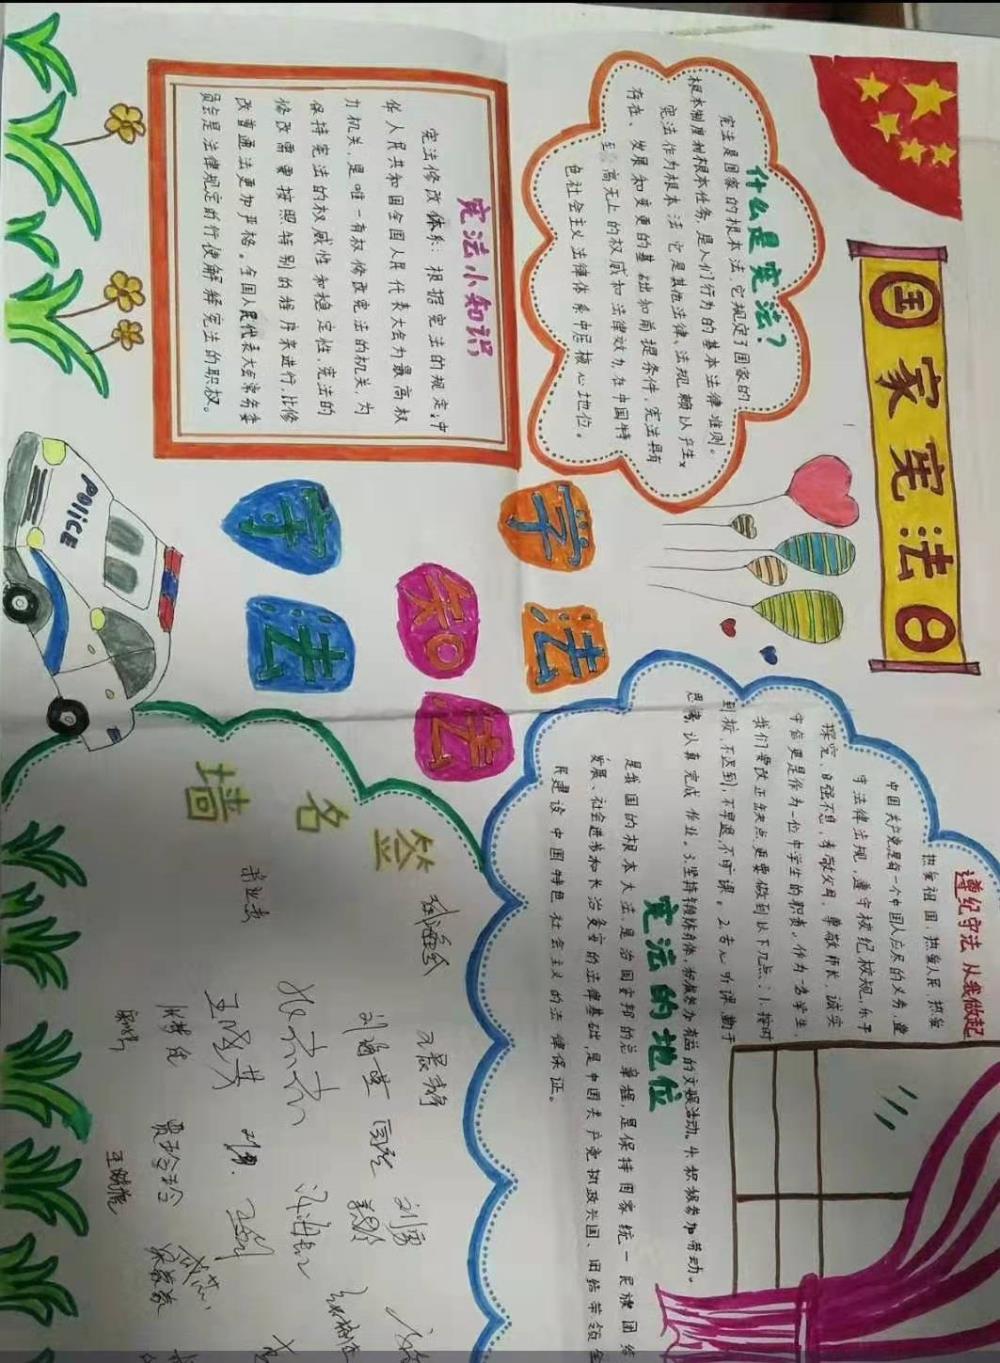 国家宪法日
什么是宪法?
宪法是国家的根本法,它规定了国家的
根本制度和根本任务,是人们行为的基本法律准则。
宪法作为根本法,它是其他法律、法规赖以产生、
存在、发展和变更的基础和前提条件,宪法具有
至高无上的权威和法律效力,在中国特
色社会主义法律体系中居核心地位。
宪法小知识
宪法修改体系:根据宪法的规定,中
华人民共和国全国人民代表大会为最高权
力机关,是唯一有权修改宪法的机关,为
保持宪法的权威性和稳定性,宪法的
修改需要按照特别的程序来进行,比修
改普通法更加严格。全国人民代表大会常务委
员会是法律规定的行使解释宪法的职权。
学法
知法
守法
POLICE
遵纪守法 从我做起
热爱祖国,热爱人民,热爱
中国共产党是每一个中国人应尽的义务,遵
守法律法规,遵守校纪校规,乐于
探究、自强不息,孝敬父母,尊敬师长,诚实
守信更是作为一位中学生的职责。作为一名学生,
我们要改正缺点,更要做到以下几点:1.按时
到校,不迟到,不早退,不旷课。2.专心听课,勤于
思考,认真完成作业。3.坚持锻炼身体,积极参加有益的文娱活动。4.积极参加劳动。
宪法的地位
是我国的根本大法,是治国安邦的总章程,是保持国家统一、民族团结
发展、社会进步和长治久安的法律基础,是中国共产党执政兴国、团结带领全
民建设中国特色社会主义的法律保证。
签名墙
刘勇